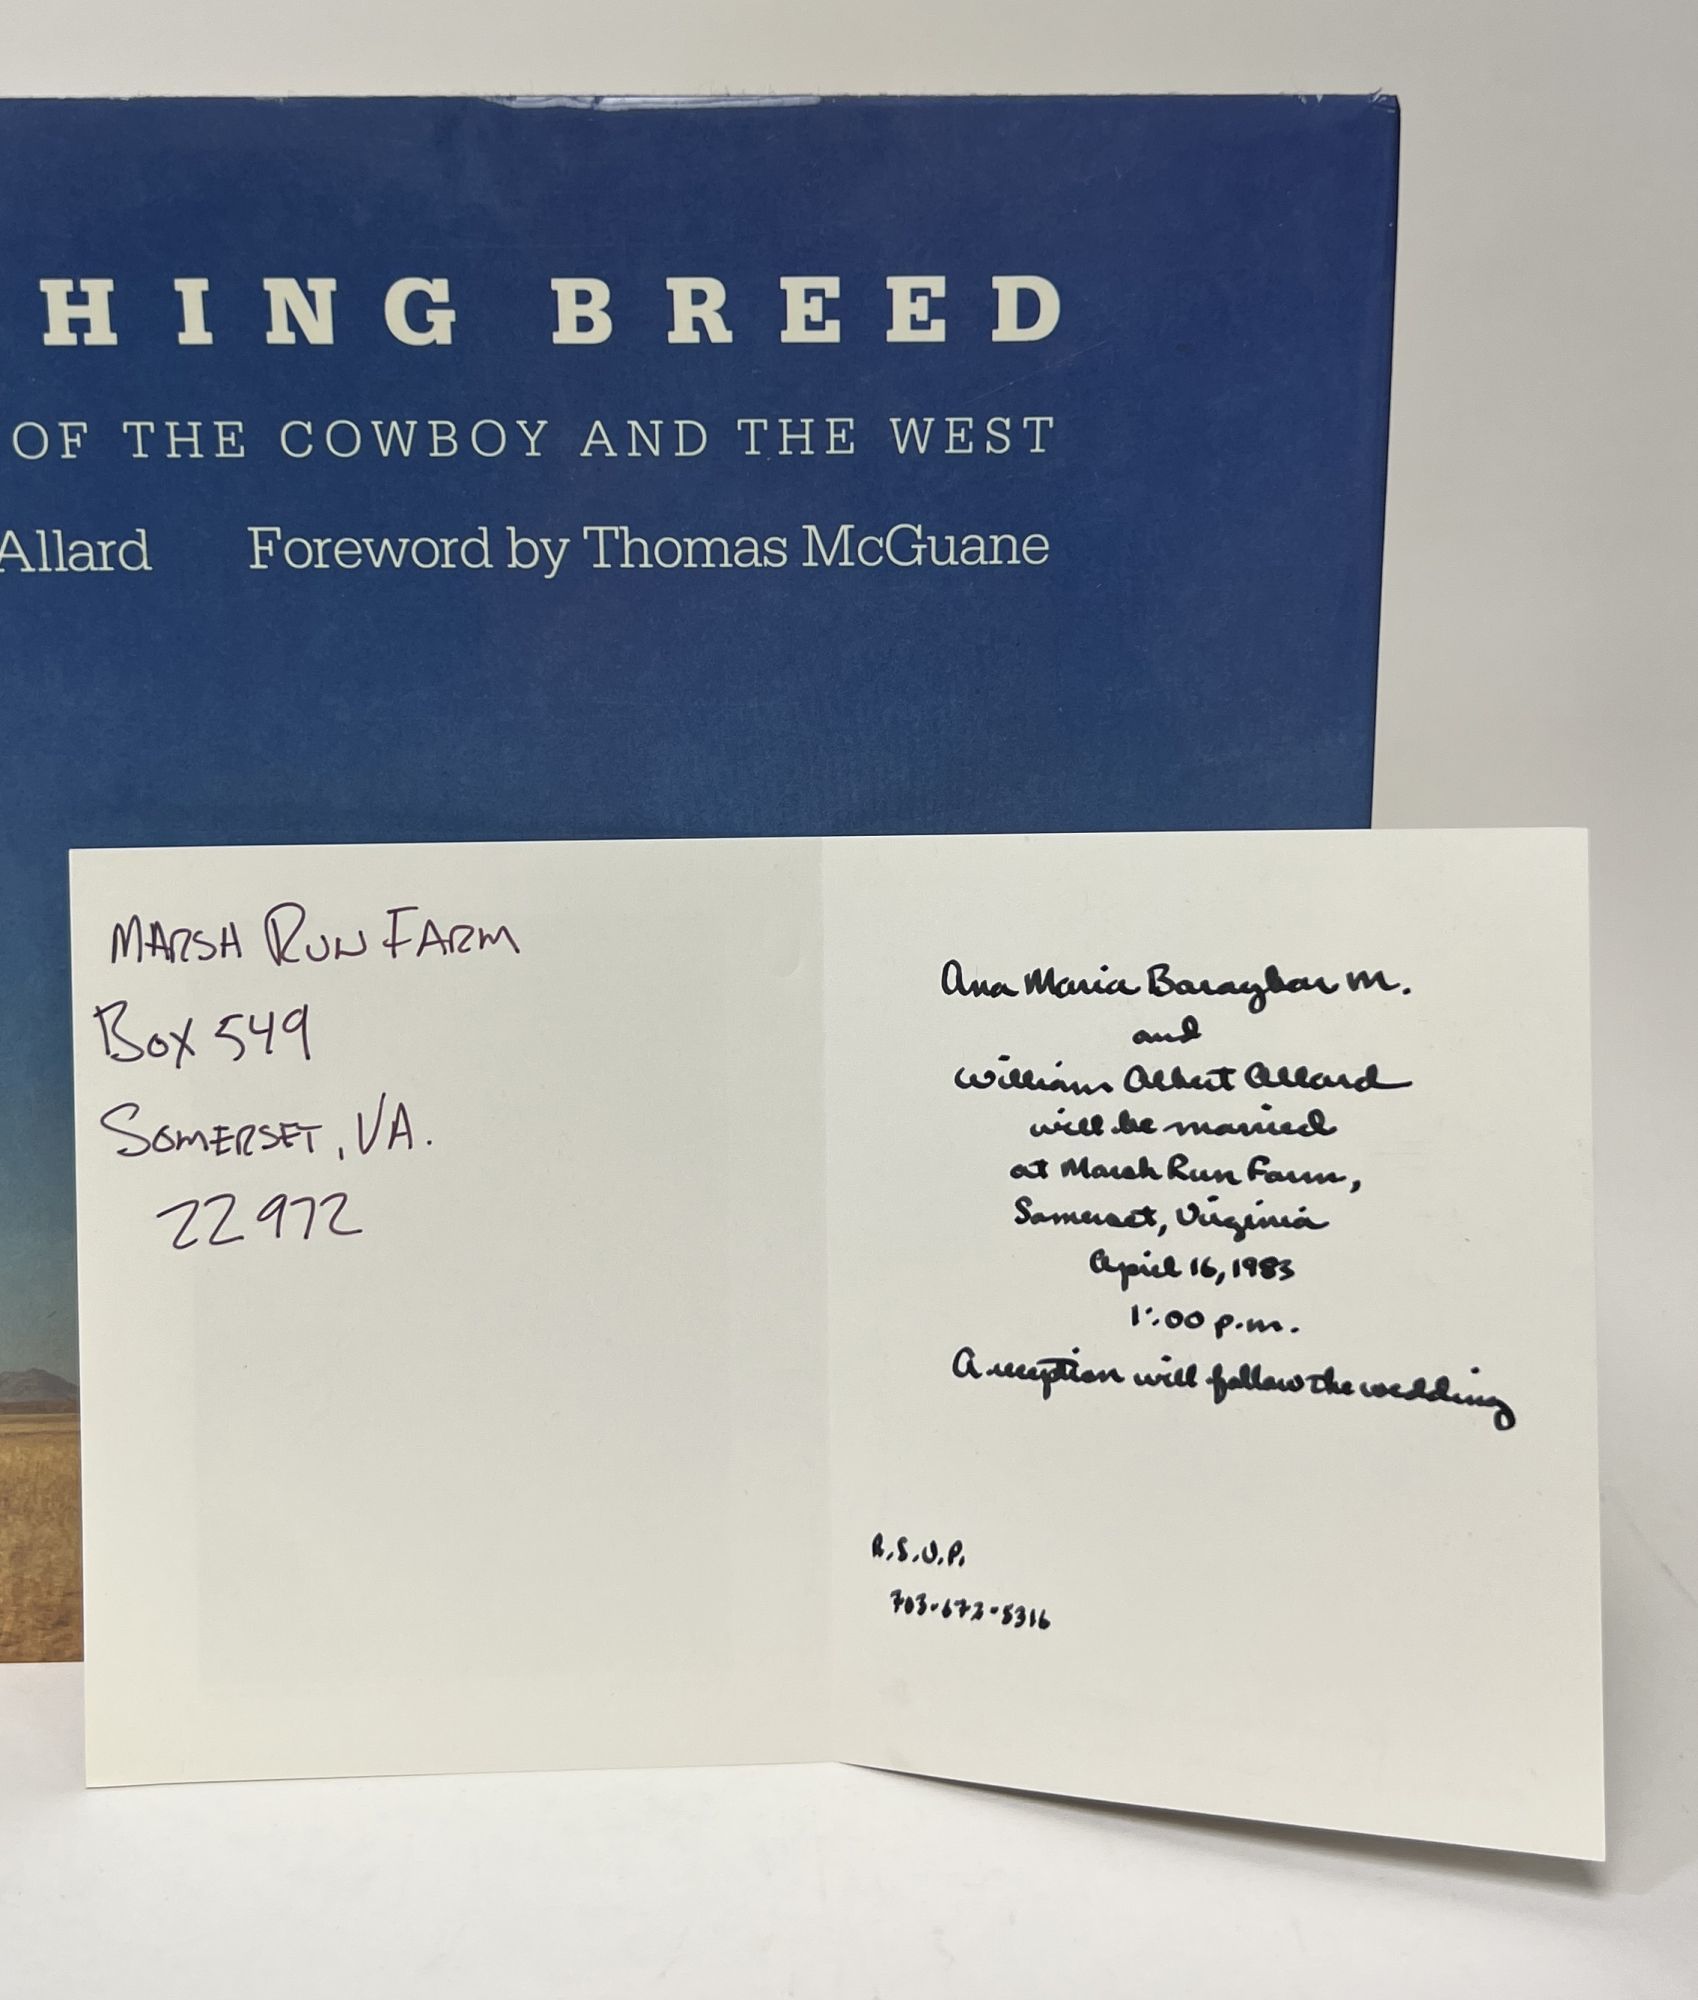 HING BREED
OF THE COWBOY AND THE WEST
Allard Foreword by Thomas McGuane
MARSH RUN FARM
BOX 549
SOMERSET, VA.
22972
Ana Maria Baraybar M.
and
William Albert Allard
will be married
at Marsh Run Farm,
Somerset, Virginia
April 16, 1983
1:00 p.m.
A reception will follow the wedding
R.S.V.P.
703-672-5316